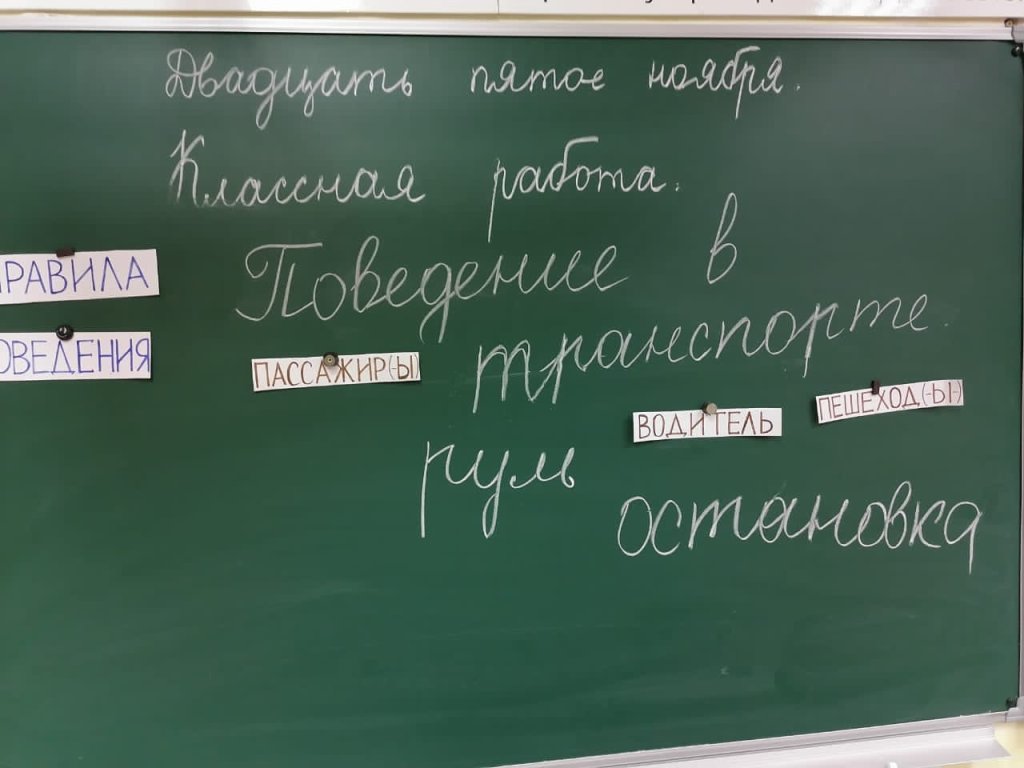 Двадцать пятое ноября.
Классная работа.
Поведение в
транспорте.
РАВИЛА
ОВЕДЕНИЯ
ПАССАЖИР(-Ы)
ВОДИТЕЛЬ
ПЕШЕХОД(-Ы-)
руль
остановка